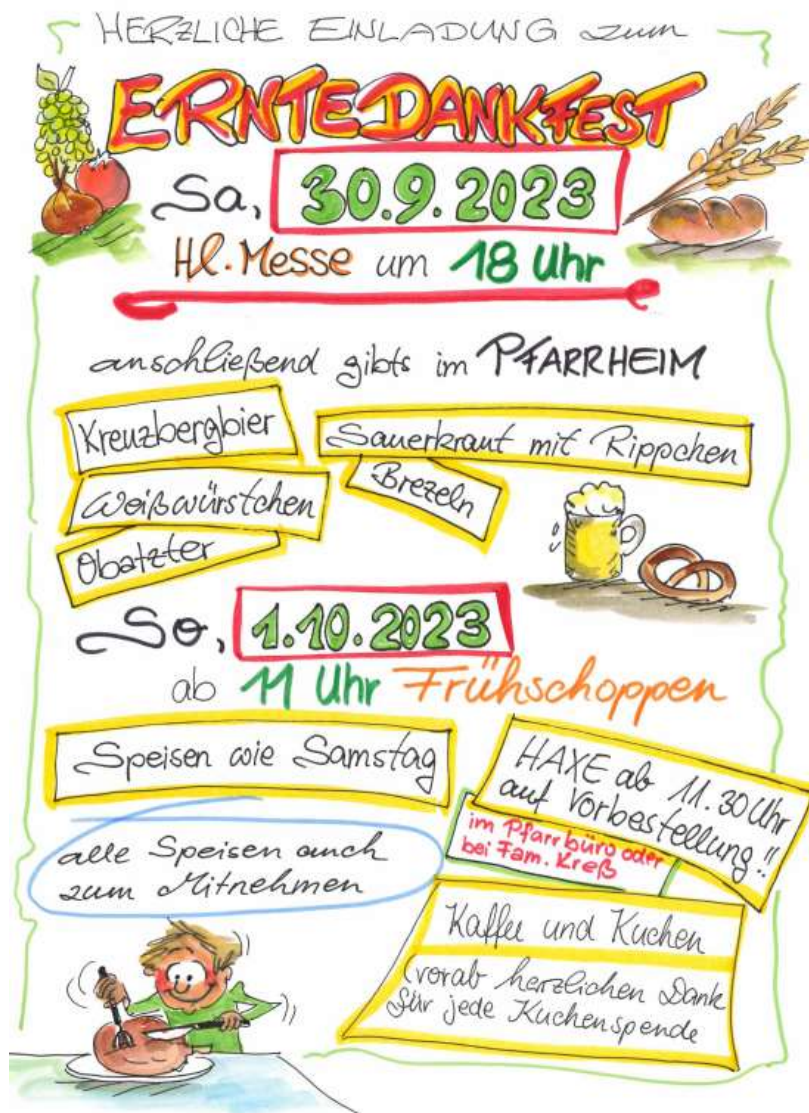 HERZLICHE EINLADUNG zum
ERNTEDANKFEST
Sa, 30.9.2023
Hl. Messe um 18 Uhr
anschließend gibts im PFARRHEIM
Kreuzbergbier
Sauerkraut mit Rippchen
Weißwürstchen
Brezeln
Obatzter
So, 1.10.2023
ab 11 Uhr Frühschoppen
Speisen wie Samstag
HAXE ab 11.30 Uhr
auf Vorbestellung!!
im Pfarrbüro oder
bei Fam. Kreß
alle Speisen auch
zum Mitnehmen
Kaffee und Kuchen
(vorab herzlichen Dank
für jede Kuchenspende